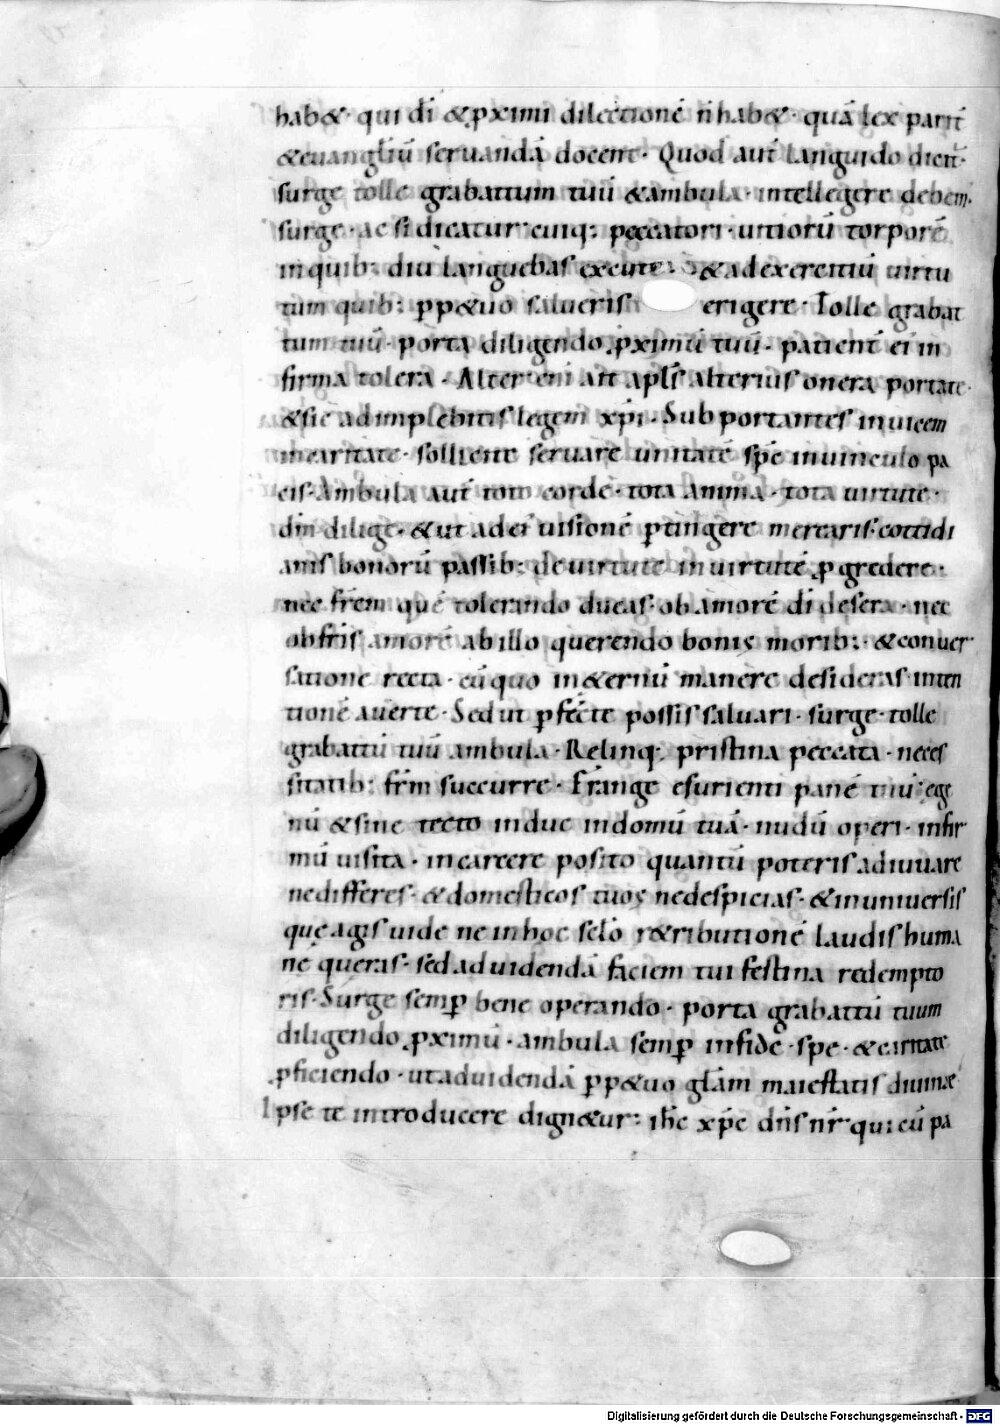 hab&· qui dī & ꝓximi dilectionē ñ hab&· quā lex parit̄
& euangliū seruandā docent· Quod aut̄ languido dicit̄·
surge tolle grabattum tuū & ambula· intellegere debem̄·
surge· ac si dicatur cuiq; peccatori· uitiorū torporē
in quib; diu languebas excute· & ad exercitiū uirtu
tum quib; ꝑp&uo salueris erigere· Tolle grabat
tum tuū· porta diligendo ꝓximū tuū· patient̄ ei in
firma tolera· Alter eni ait apls̄ alterius onera portate·
& sic adimplebitis legem xp̄i· Subportantes inuicem
in caritate· solliciti seruare unitatē sp̄c in uinculo pa
cis· Ambula aut̄ toto corde· tota anima· tota uirtute·
dm̄ dilige· & ut ad ei uisionē ꝑtingere merearis· cottidi
anis bonorū passib; de uirtute in uirtutē ꝓgredere·
nec fr̄em quē tolerando ducas· ob amorē dī desera· nec
ob fr̄is amorē ab illo querendo bonis morib; & conuer
satione recta· cū quo in &ernū manere desideras inten
tionē auerte· Sed ut ꝑfecte possis saluari· surge· tolle
grabattū tuū ambula· Relinq; pristina peccata· neces
sitatib; fr̄m succurre· Frange esurienti panē tuū· ege
nū & sine tecto induc in domū tuā· nudū operi· infir
mū uisita· in carcere posito quantū poteris adiuuare
ne differes· & domesticos tuos ne despicias· & in uniuersis
quę agis uide ne in hoc sclō r&ributionē laudis huma
nę queras· sed ad uidendā faciem tui festina redempto
ris· Surge semꝑ bene operando· porta grabattū tuum
diligendo ꝓximū· ambula semꝑ in fide· spe· & caritate
ꝓficiendo· ut ad uidendā ꝑp&uo glām maiestatis diuinæ
Ipse te introducere dign&ur· ihc̄ xp̄c dn̄s nr̄ qui cū pa
Digitalisierung gefördert durch die Deutsche Forschungsgemeinschaft - DFG